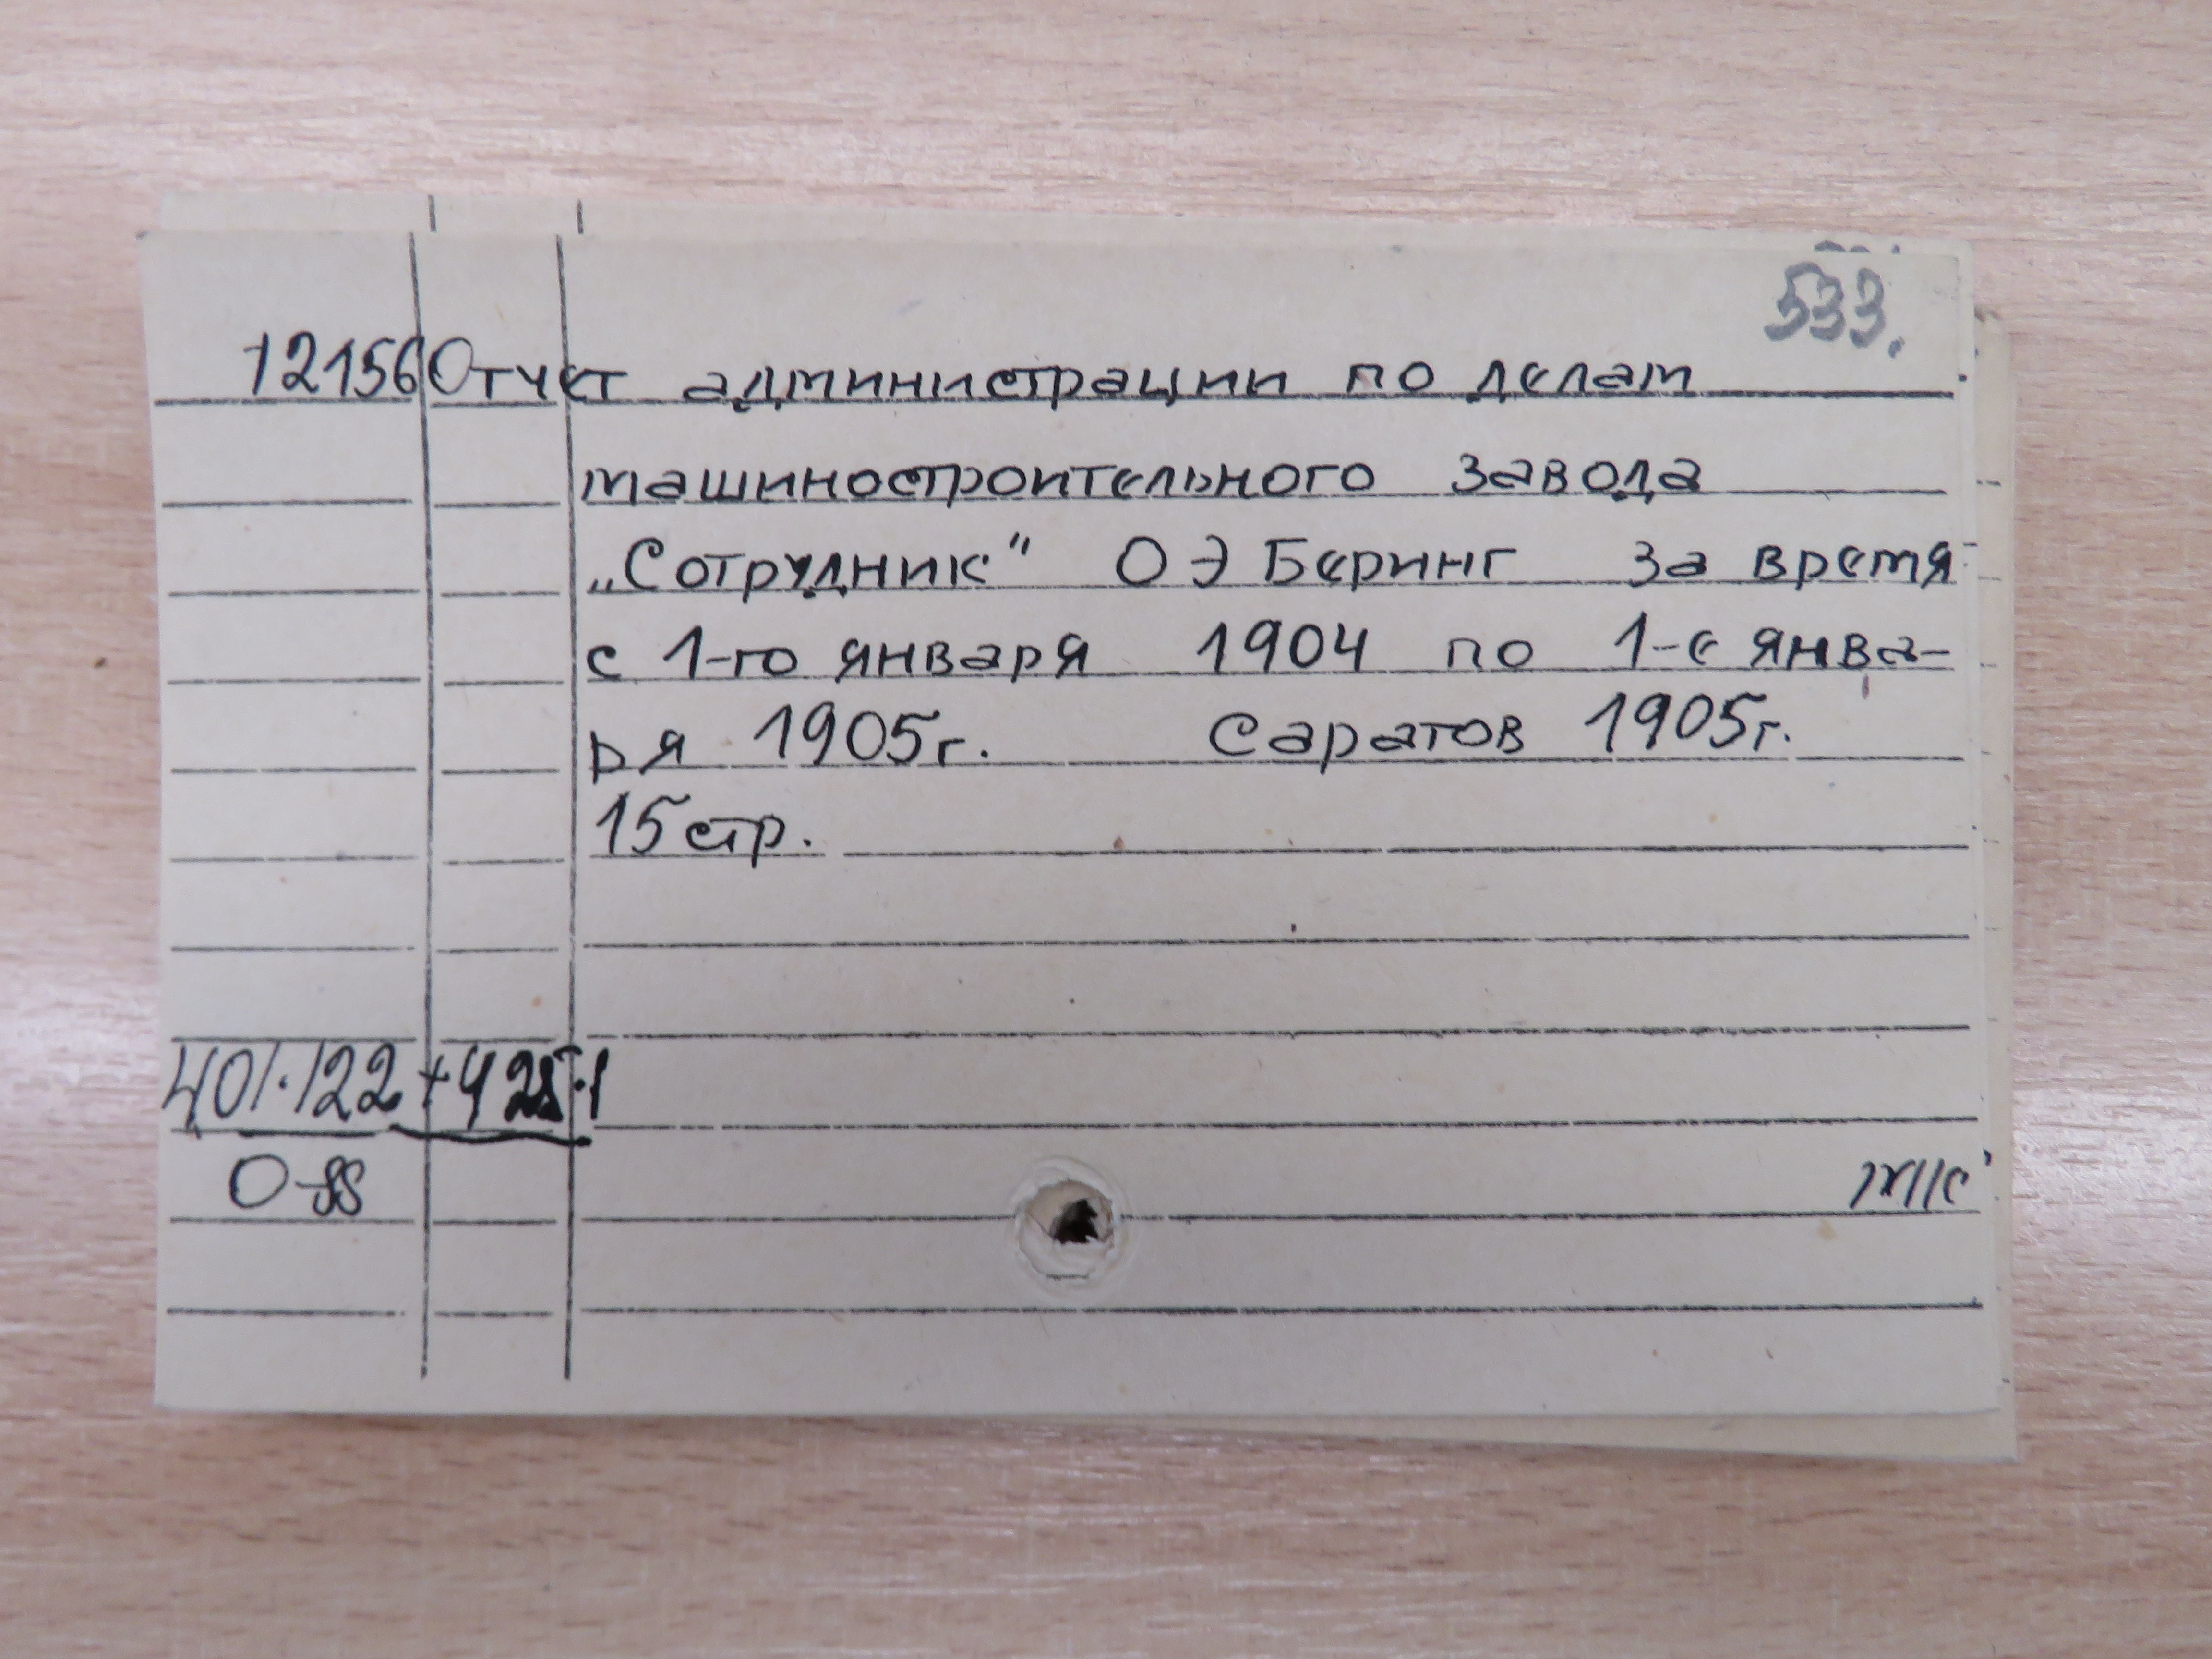 533.
12156 Отчет администрации по делам
машиностроительного завода
„Сотрудник“ О Э Беринг за время
с 1-го января 1904 по 1-е янва-
ря 1905г. Саратов 1905г.
15 стр.
401.122 +
О-88